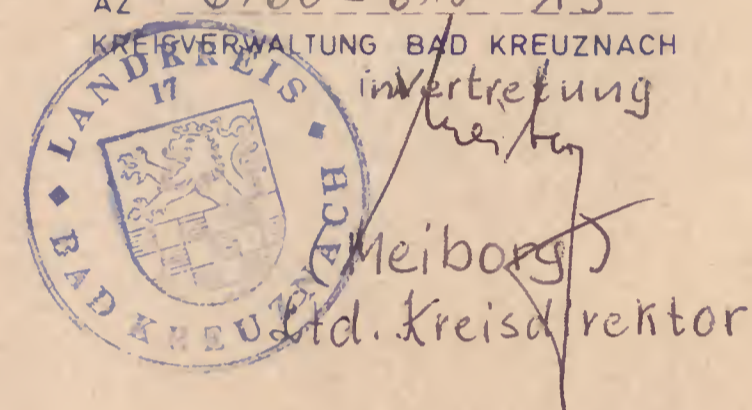 AZ
KREISVERWALTUNG BAD KREUZNACH
in Vertretung
(Meiborg)
Ltd. Kreisdirektor
LANDKREIS
BAD KREUZNACH
17